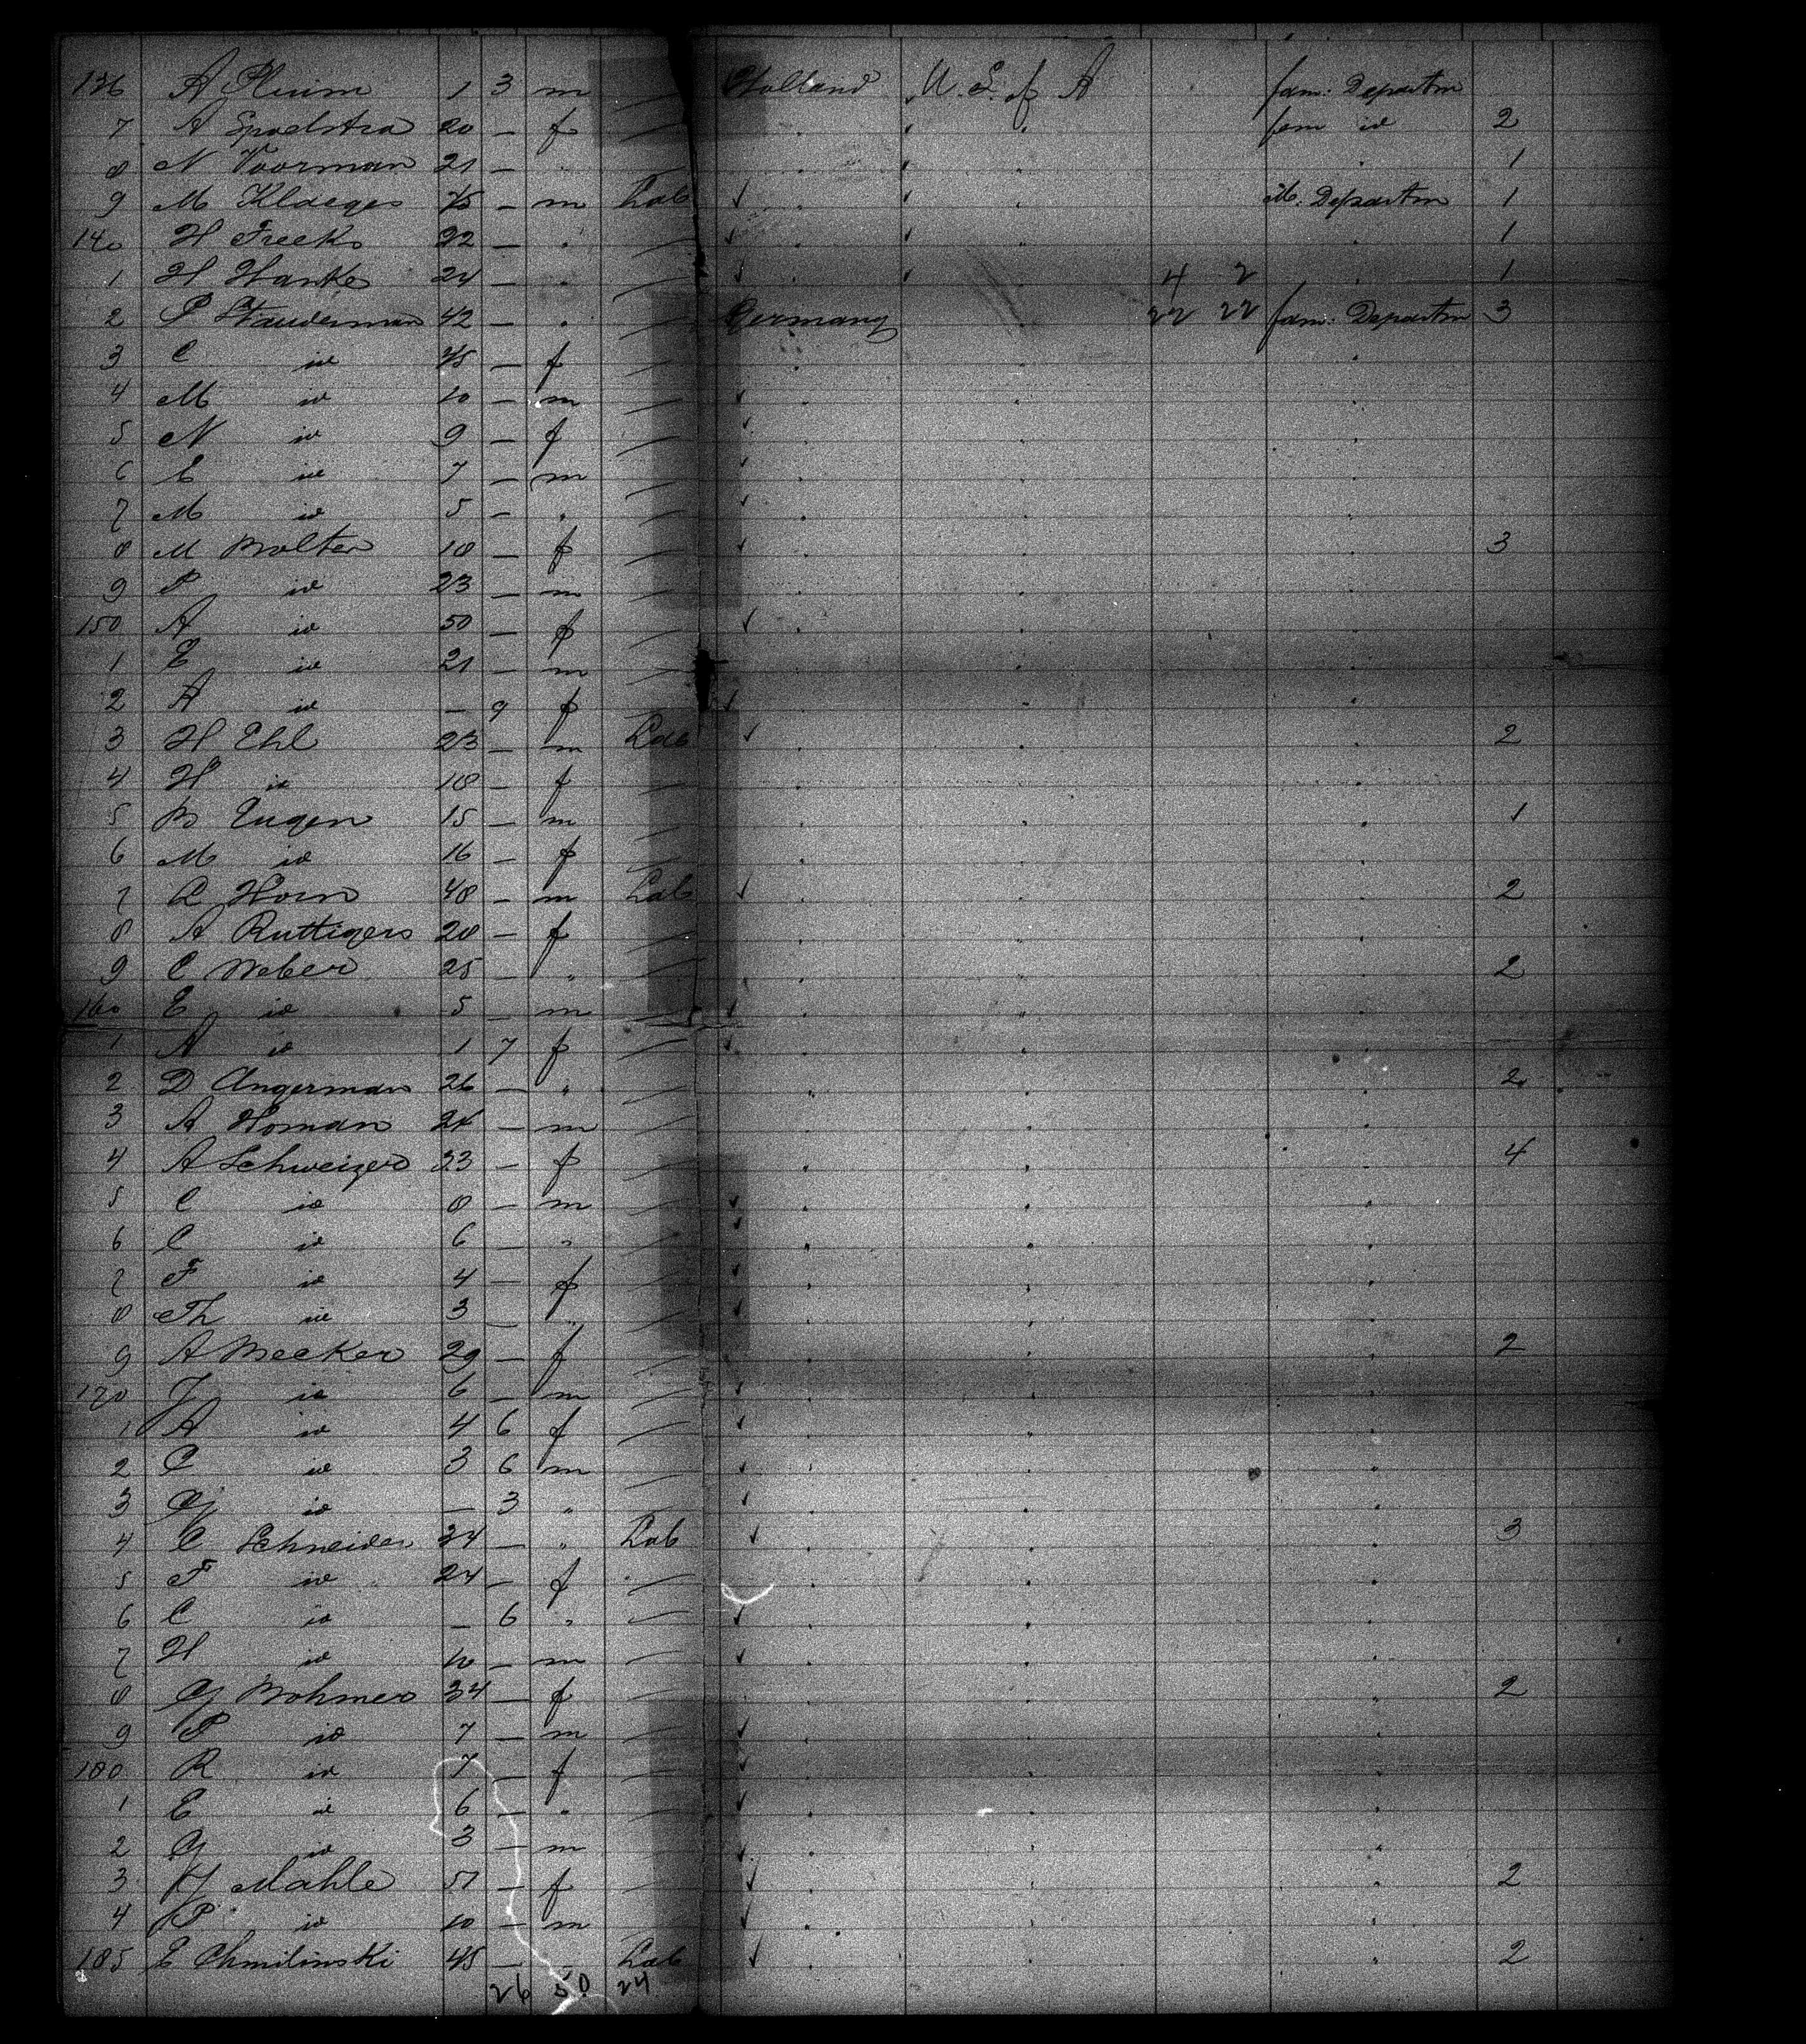 136 A Pluim 1 3 m — Holland U. S. of A fam: Departm
7 A Spoelstra 20 — f — " " fem id 2
8 N Voorman 21 — " " " " 1
9 M Klaeges 45 — m Lab " " M. Departm 1
140 H Freeks 22 — " — " " " 1
1 H Hanke 24 — " — " " 4 2 " 1
2 P Stauderman 42 — " — Germany " 22 22 fam: Departm 3
3 C id 45 — f — " " "
4 M id 10 — m — " " "
5 N id 9 — f — " " "
6 E id 7 — m — " " "
7 M id 5 — " — " " "
8 M Wolter 18 — f — " " " 3
9 P id 23 — m — " " "
150 A id 50 — f — " " "
1 E id 21 — m — " " "
2 A id — 9 f — " " "
3 H Ehl 23 — m Lab " " " 2
4 H id 18 — f — " " "
5 B Eugen 15 — m — " " " 1
6 M id 16 — f — " " "
7 C Horn 48 — m Lab " " " 2
8 A Ruttigers 20 — f — " " "
9 C Weber 25 — " — " " " 2
160 E id 5 — m — " " "
1 A id 1 7 f — " " "
2 D Angerman 26 — " — " " " 2
3 A Homan 24 — m — " " "
4 A Schweizer 23 — f — " " " 4
5 C id 8 — m — " " "
6 C id 6 — " — " " "
7 F id 4 — f — " " "
8 Th id 3 — " — " " "
9 A Becker 29 — f — " " " 2
170 J id 6 — m — " " "
1 A id 4 6 f — " " "
2 C id 3 6 m — " " "
3 G id — 3 " — " " "
4 C Schneider 34 — " Lab " " " 3
5 F id 24 — f — " " "
6 C id — 6 " — " " "
7 H id 10 — m — " " "
8 G Bohmer 34 — f — " " " 2
9 P id 7 — m — " " "
180 R id 7 — f — " " "
1 E id 6 — " — " " "
2 G id 3 — m — " " "
3 J Mahle 51 — f — " " " 2
4 P id 10 — m — " " "
185 E Chmilinski 45 — " Lab " " " 2
26 50 24